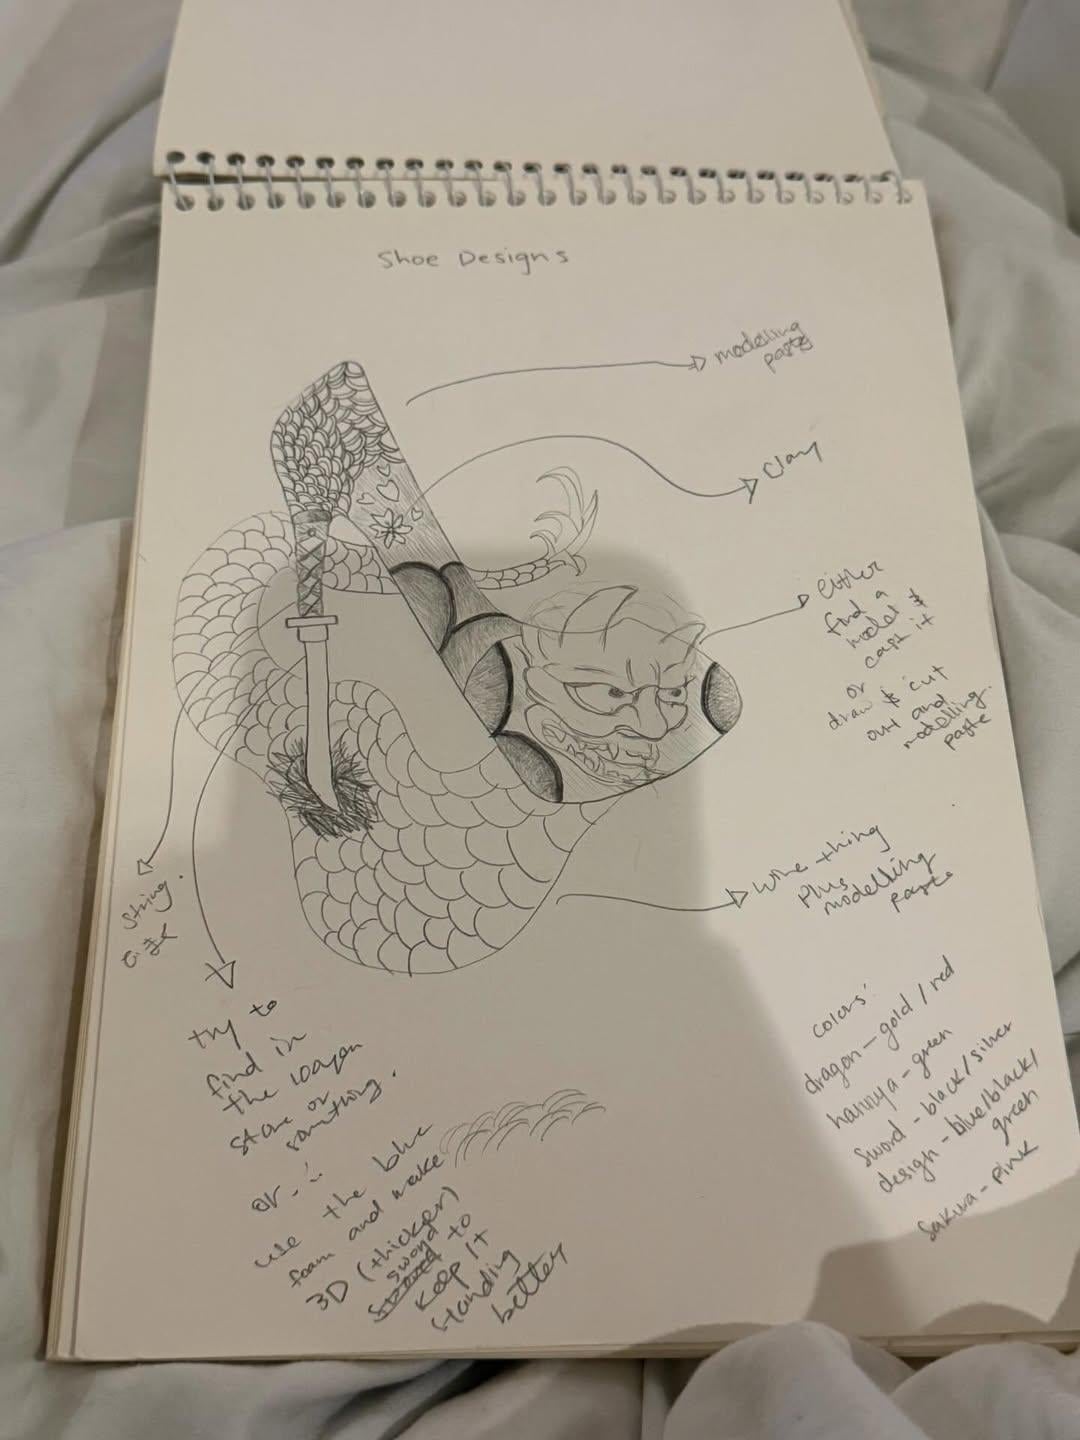 Shoe Designs
modelling
paste
Clay
either
find a
model &
cast it
or
draw & cut
out and
modelling
paste
wire thing
Plus
modelling
paste
string.
try to
find in
the 100yen
store or
something.
or
use the blue
foam and make
3D (thicker)
sword
to
keep it
standing
better
colors:
dragon – gold / red
hannya – green
sword – black / silver
design – blue/black/
green
Sakura – pink